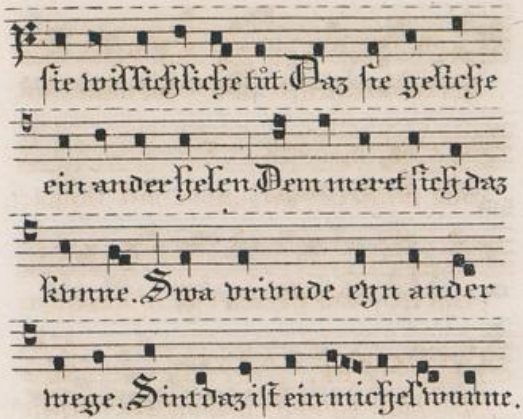 sie willichliche tůt. Daz sie geliche
ein ander helen. Dem meret sich daz
kvnne. Swa vrivnde eyn ander
wege. Sint daz ist ein michel wunne.